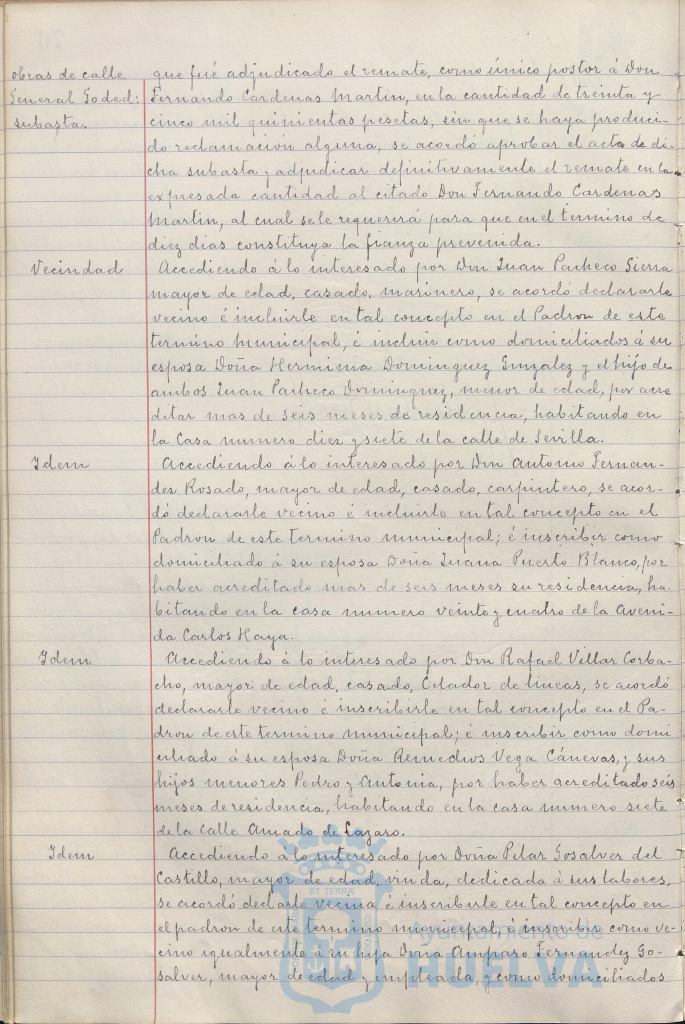 obras de calle
General Goded:
subasta.
que fué adjudicado el remate, como único postor á Don
Fernando Cardenas Martin, en la cantidad de treinta y
cinco mil quinientas pesetas, sin que se haya produci-
do reclamación alguna, se acordó aprobar el acta de di-
cha subasta y adjudicar definitivamente el remate en la
expresada cantidad al citado Don Fernando Cardenas
Martin, al cual se le requerirá para que en el termino de
diez dias constituya la fianza prevenida.
Vecindad
Accediendo á lo interesado por Don Juan Pacheco Sierra
mayor de edad, casado, marinero, se acordó declararle
vecino é incluirle en tal concepto en el Padron de este
termino municipal, é incluir como domiciliados á su
esposa Doña Herminia Dominguez Gonzalez y el hijo de
ambos Juan Pacheco Dominguez, menor de edad, por acre
ditar mas de seis meses de residencia, habitando en
la Casa numero diez y siete de la calle de Sevilla.
Idem
Accediendo á lo interesado por Don Antonio Fernan-
dez Rosado, mayor de edad, casado, carpintero, se acor-
dó declararle vecino é incluirle en tal concepto en el
Padron de este termino municipal; é inscribir como
domiciliado á su esposa Doña Juana Puerto Blanco, por
haber acreditado mas de seis meses su residencia, ha-
bitando en la casa numero veinte y cuatro de la Aveni-
da Carlos Haya.
Idem
Accediendo á lo interesado por Don Rafael Villar Corba-
cho, mayor de edad, casado, Celador de lineas, se acordó
declararle vecino é inscribirle en tal concepto en el Pa-
dron de este termino municipal; é inscribir como domi
ciliado á su esposa Doña Remedios Vega Cánevas, y sus
hijos menores Pedro y Antonia, por haber acreditado seis
meses de residencia, habitando en la casa numero siete
de la Calle Amado de Lazaro.
Idem
Accediendo á lo interesado por Doña Pilar Gosalver del
Castillo, mayor de edad, viuda, dedicada á sus labores,
se acordó declarle vecina é inscribirle en tal concepto en
el padron de este termino municipal, é inscribir como ve-
cino igualmente á su hija Doña Amparo Fernandez Go-
salver, mayor de edad y empleada, y como domiciliados
ET TERRÆ
Ayuntamiento de
HUELVA